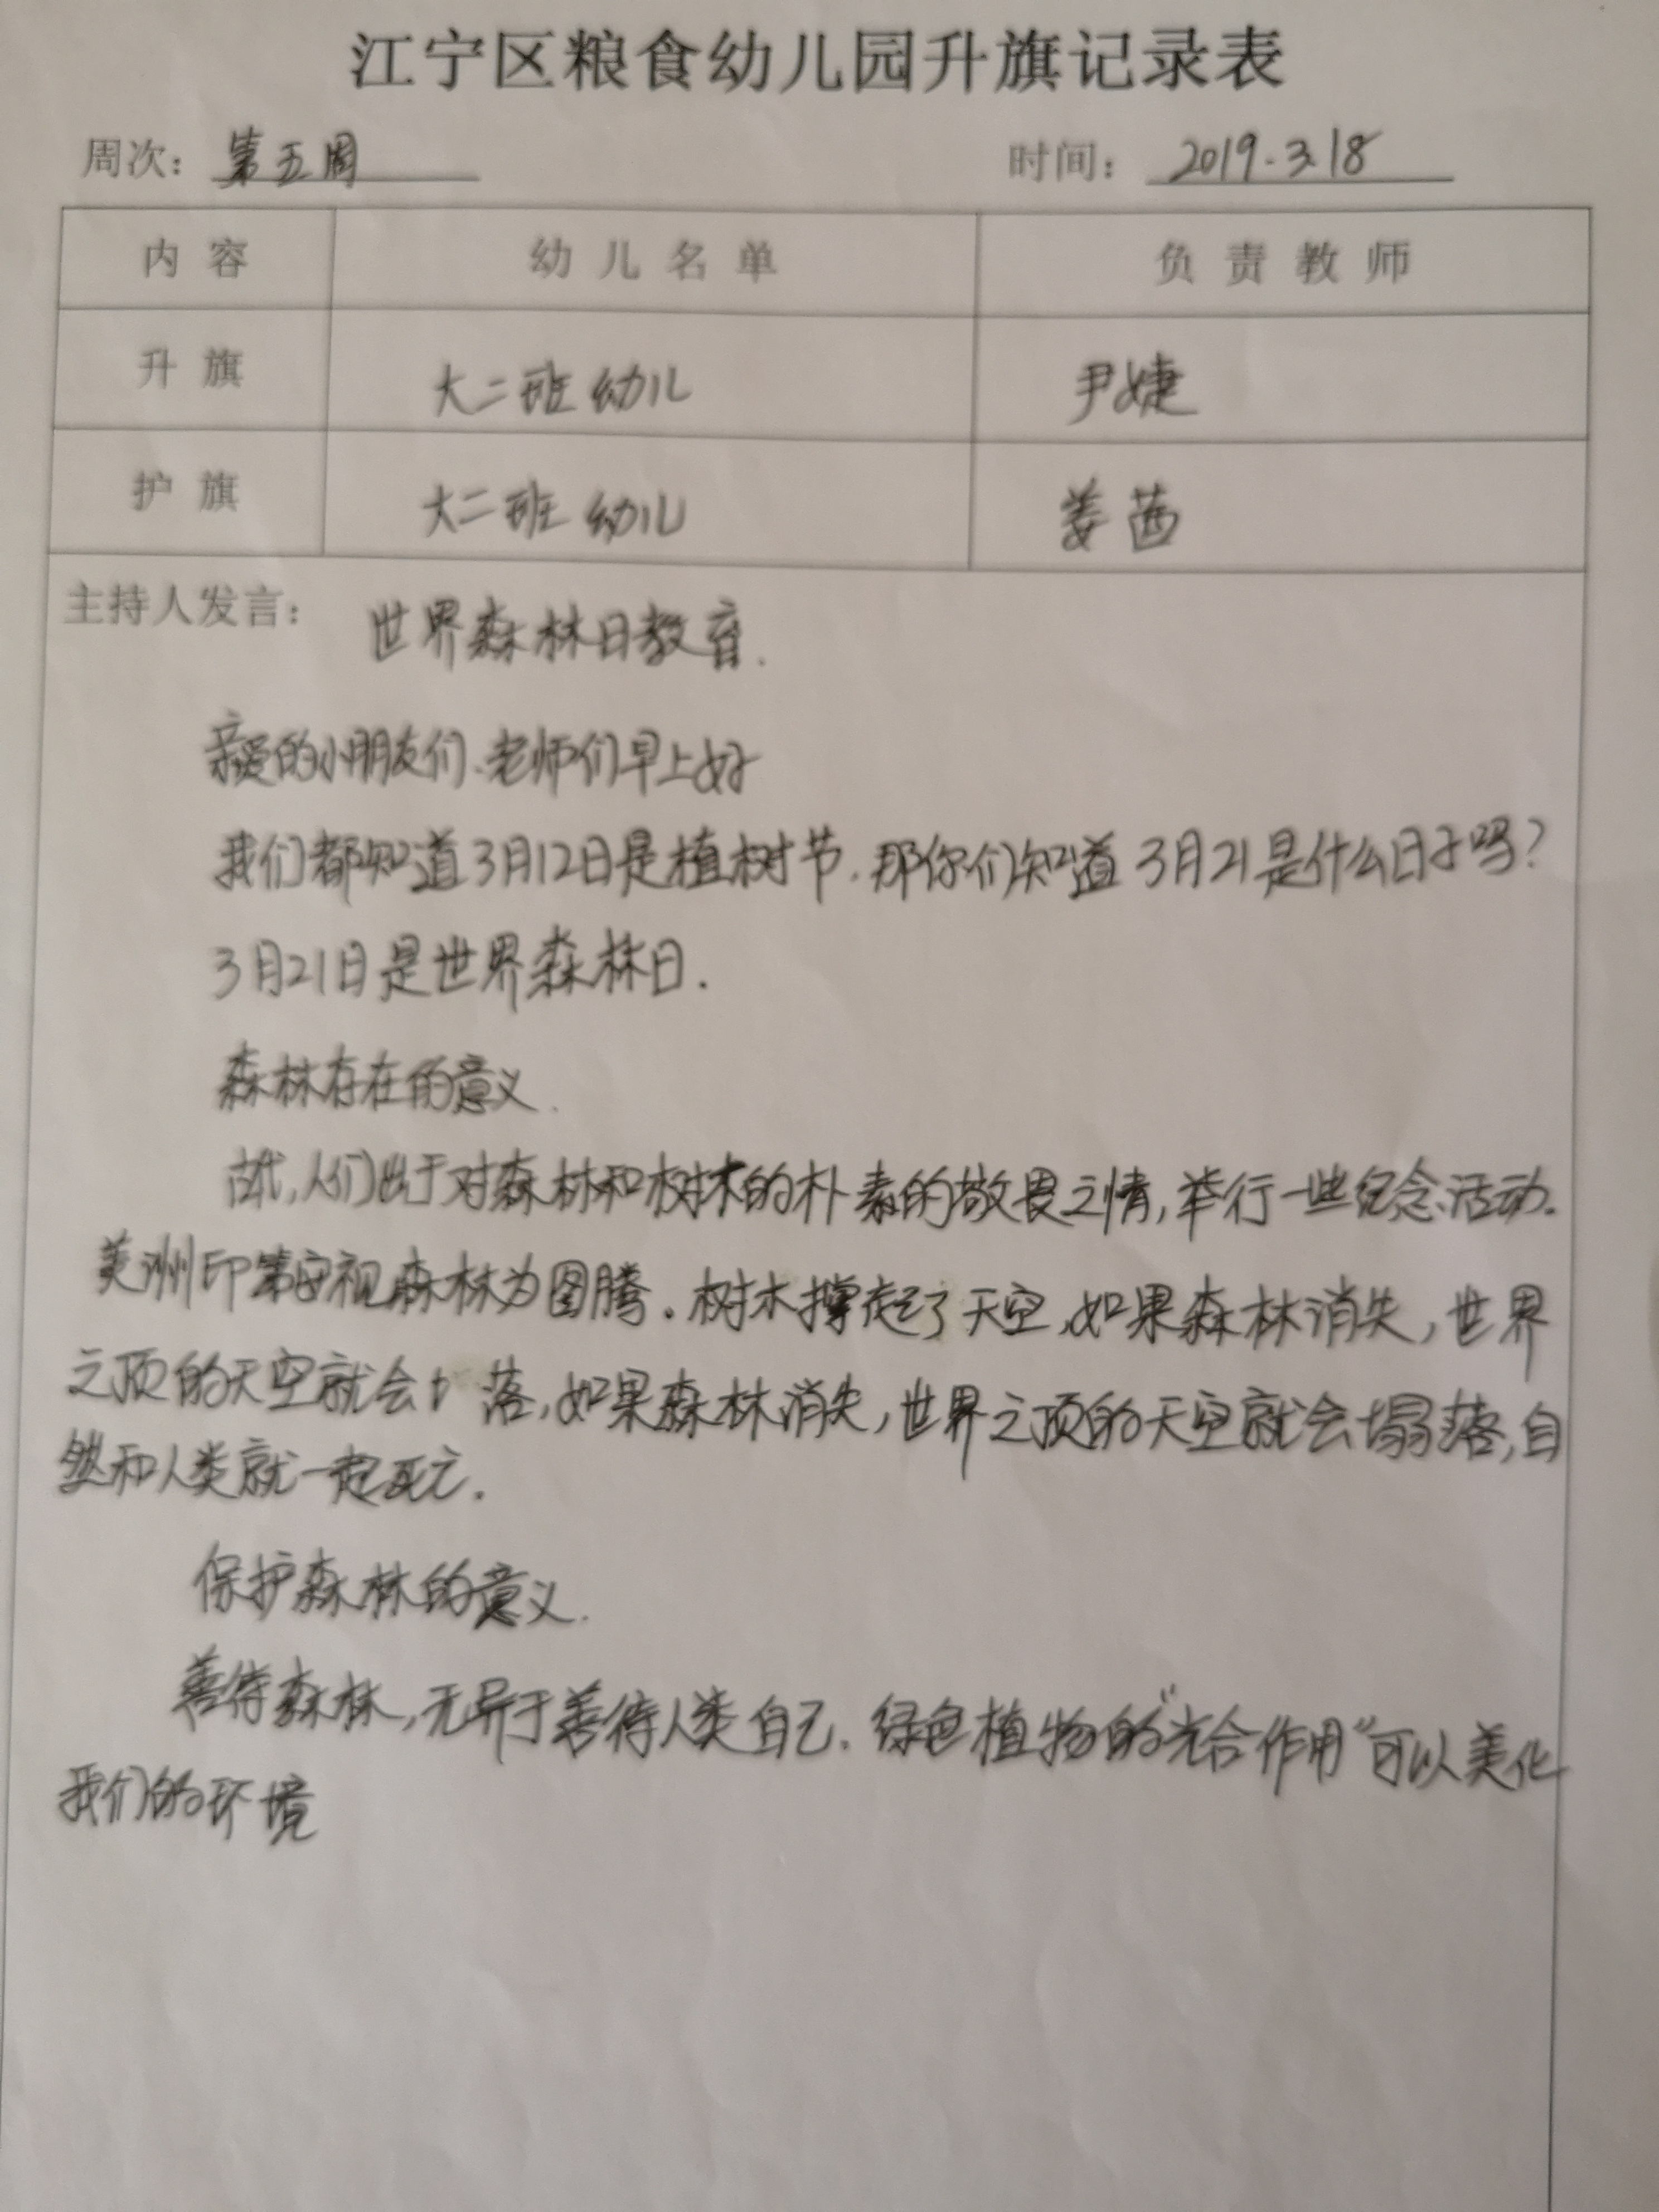 江宁区粮食幼儿园升旗记录表
周次：第五周 时间：2019.3.18
内容 幼儿名单 负责教师
升旗 大二班幼儿 尹婕
护旗 大二班幼儿 姜茜
主持人发言： 世界森林日教育.
亲爱的小朋友们、老师们早上好
我们都知道3月12日是植树节.那你们知道3月21是什么日子吗?
3月21日是世界森林日.
森林存在的意义.
古代,人们出于对森林和树木的朴素的敬畏之情,举行一些纪念活动.
美洲印第安视森林为图腾.树木撑起了天空,如果森林消失,世界
之顶的天空就会 落,如果森林消失,世界之顶的天空就会塌落,自
然和人类就一起死亡.
保护森林的意义.
善待森林,无异于善待人类自己.绿色植物的"光合作用"可以美化
我们的环境